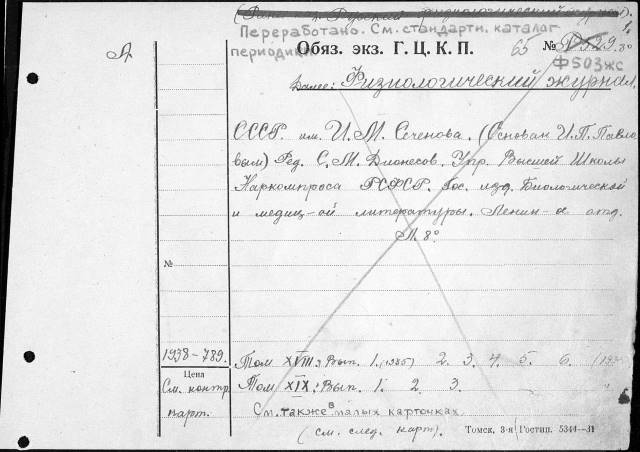 Переработано. См. стандартн. каталог
периодики
Обяз. экз. Г. Ц. К. П. 65 № 8°
Ф503жс
А
Далее: Физиологический журнал,
СССР им. И. М. Сеченова. (Основан И. П. Павло-
вым) Ред. С. М. Дионесов. Упр. Высшей Школы
Наркомпроса РСФСР. Гос. изд. Биологической
и медиц-ой литературы. Ленин-ое отд.
М. 8°
№
1938-789. Том XVIII: Вып. 1. (1935) 2. 3. 4. 5. 6.
Цена
См. контр. Том XIX: Вып. 1. 2. 3.
карт. См. также в малых карточках.
(см. след. карт). Томск, 3-я Гостип. 5344—31